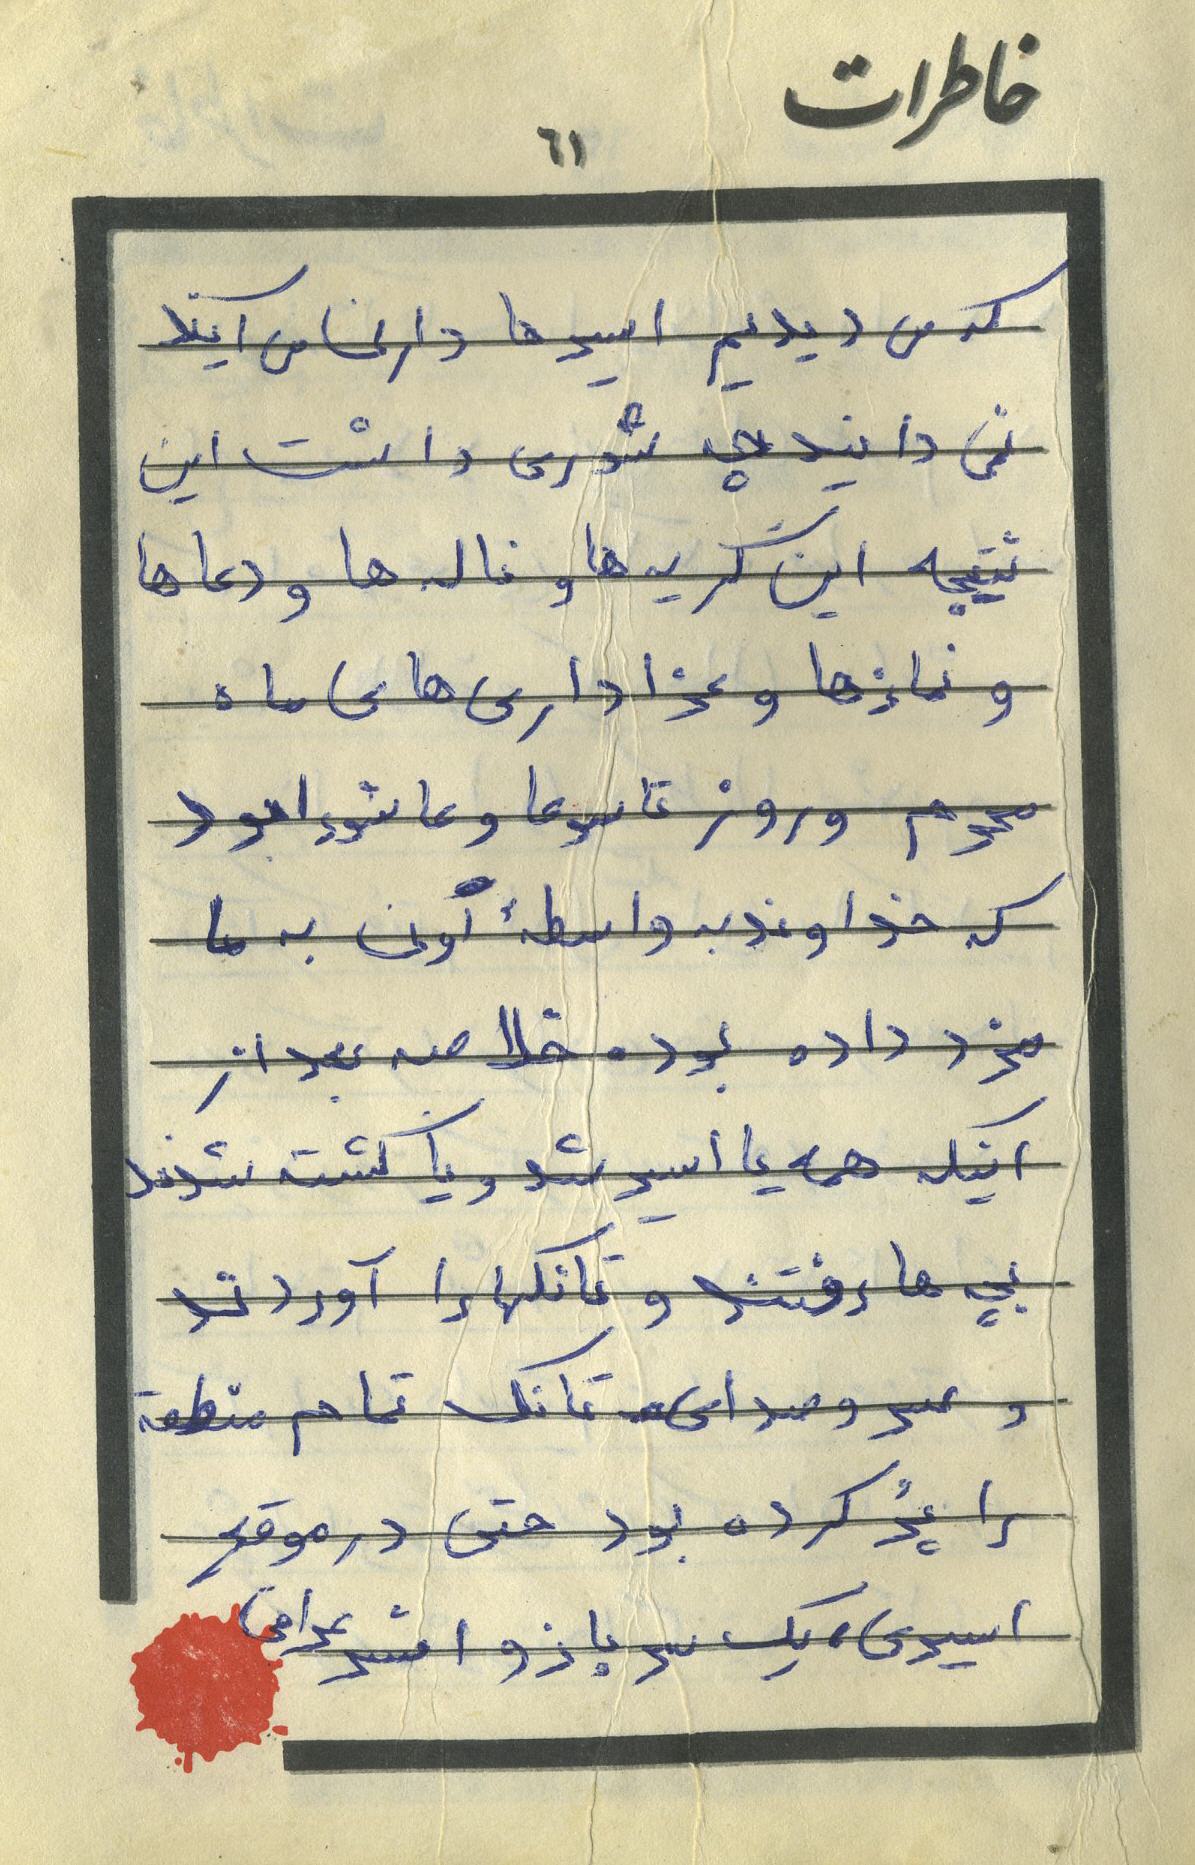 خاطرات
٦١
که می دیدیم اسیرها دارند می آیند
نمی دانید چه شوری داشت این
نتیجه این گریه ها و ناله ها و دعا ها
و نمازها و عزاداری های ماه
محرم و روز تاسوعا و عاشورا بود
که خداوند به واسطهٔ به ما
مزد داده بوده خلاصه بعد از
اینکه همه یا اسیر شد و یا کشته شدند
بچه ها رفتند و تانکها را آوردند
و سر و صدای تانک تمام منطقه
را پُر کرده بود حتی در موقع
اسیری، یک سرباز و افسر عراقی